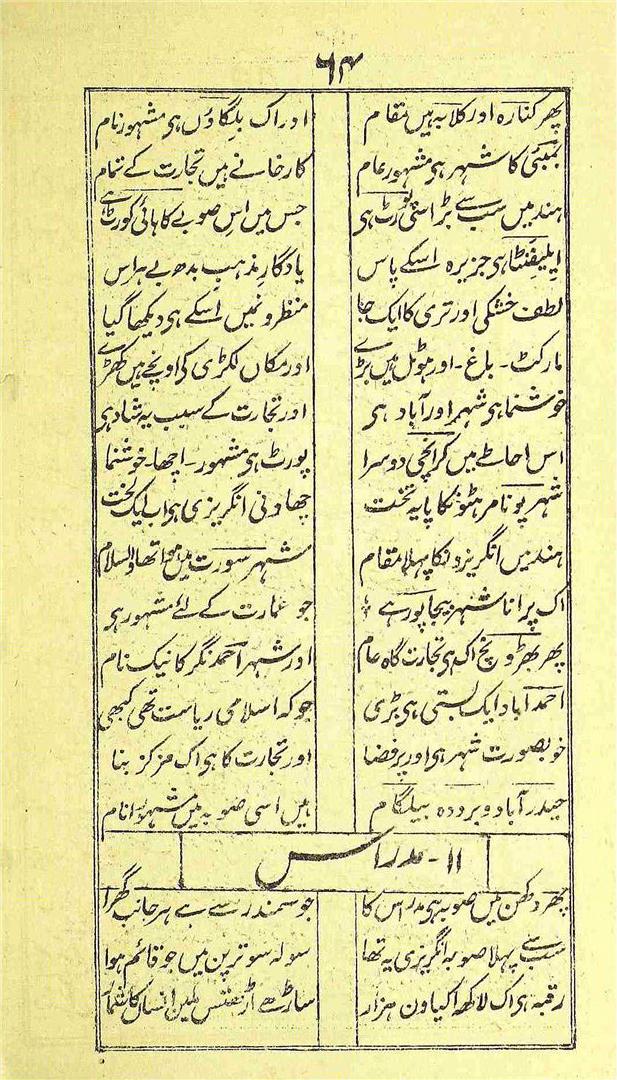 ۶۴
پھر کنارہ اور کلابہ ہیں مقام اور اک بلگاؤں ہی مشہور نام
بمبئی کا شہر ہی مشہور عام کارخانے ہیں تجارت کے تمام
ہند میں سب سے بڑا سٹی پورٹ ہی جس میں اس صوبے کا ہائی کورٹ ہے
ایلیفنٹا ہی جزیرہ اسکے پاس یادگار مذہب بدھ بے ہراس
لطف خشکی اور تری کا ایک جا منظرونمیں اسکے ہی دیکھا گیا
مارکٹ - باغ - اور ہوٹل ہیں بڑے اور مکاں لکڑی کی اونچے ہیں کھڑے
خوشنما ہی شہر اور آباد ہی اور تجارت کے سبب یہ شاد ہی
اس احاطے میں کرانچی دوسرا پورٹ ہی مشہور - اچھا - خوشنما
شہر پونا مرہٹونکا پایہ تخت چھاونی انگریزی ہو اب ایک لخت
ہند میں انگریزونکا پہلا مقام شہر سورت میں ہوا تھا والسلام
اک پرانا شہر بیجاپور ہے جو عمارت کے لئے مشہور ہی
پھر بھڑونچ اک ہی تجارت گاہ عام اور شہر احمد نگر کا نیک نام
احمد آباد ایک بستی ہی بڑی جو کہ اسلامی ریاست تھی کبھی
خوبصورت شہر ہی اور پرفضا اور تجارت کا ہی اک مرکز بنا
حیدرآباد و برودہ بیلگام ہیں اسی صوبہ میں مشہور انام
۱۱ - مدراس
پھر دکھن میں صوبہ ہی مدراس کا جو سمندر سے ہے ہر جانب گھرا
سب سے پہلا صوبہ انگریزی یہ تھا سولہ سو ترپن میں جو قائم ہوا
رقبہ ہی اک لاکھ اکیاون ہزار ساڑھے اڑتنتس ملین انساں کا شمار